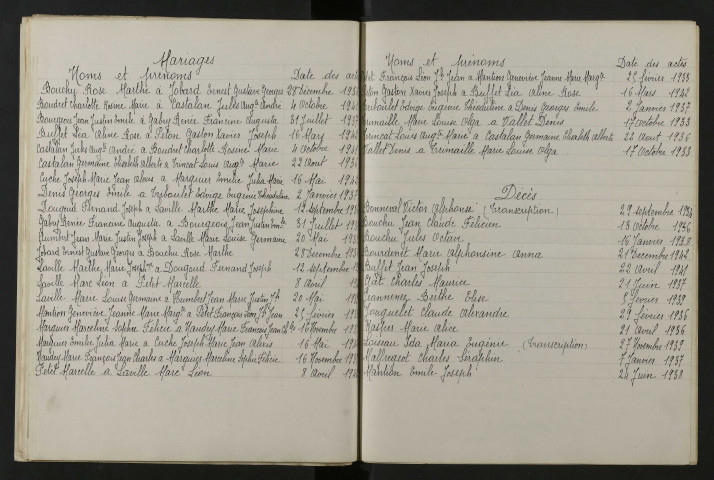 Mariages
Noms et prénoms Date des act
Bouchy Rose Marthe à Jobard Ernest Gustave Georges 28 décembre 193
Boudret Charlotte Rosine Marie à Castalan Jules Augte André 4 Octobre 194
Bourgeois Jean Justin Emile à Gaby Renée Francine Augusta 31 Juillet 193
Buffet Léa Aline Rose à Piton Gaston Xavier Joseph 16 Mars 194
Castalan Jules Augte André à Boudret Charlotte Rosine Marie 4 Octobre 194
Castalan Germaine Elisabeth Alberte à Truncat Louis Augte Marie 22 Aout 193
Cuche Joseph Marie Jean Alexis à Marguier Emilie Julia Marie 16 Mai 194
Denis Georges Emile à Edwige Eugénie 2 Janvier 193
Dougoud Fernand Joseph à Laville Marthe Marie Joséphine 12 septembre 19
Gaby Renée Francine Augusta à Bourgeois Jean Justin 31 Juillet 193
Humbert Jean Marie Justin Joseph à Laville Marie Louise Germaine 20 Mai 19
Jobard Ernest Gustave Georges à Bouchy Rose Marthe 28 décembre 19
Laville Marthe Marie à Dougoud Fernand Joseph 12 septembre
Laville Marc Léon à Petit Marcelle 8 avril
Laville Marie Louise Germaine à Humbert Jean Marie Justin 20 Mai
Mantion Geneviève Jeanne Marie à Petit François Léon Jean 25 février
Marguier Marceline Sophie Félicie à Naudey Marie François Jean 16 Novembre
Marguier Emilie Julia Marie à Cuche Joseph Marie Jean Alexis 16 Mai
Naudey Marie François Jean Charles à Marguier Marceline Sophie Félicie 16 Novembre
Petit Marcelle à Laville Marc Léon 8 Avril
Noms et prénoms Date des actes
François Léon Jean à Mantion Geneviève Jeanne Marie 25 février 1933
Gaston Xavier Joseph à Buffet Léa Aline Rose 16 Mars 1942
Edwige Eugénie à Denis Georges Emile 2 Janvier 1937
Marie Louise Olga à Vallet Denis 17 Octobre 1933
Truncat Louis Augte Marie à Castalan Germaine Elisabeth Alberte 22 Aout 1936
Vallet Denis à Marie Louise Olga 17 Octobre 1933
Décès
Bonneval Victor Alphonse (Transcription) 29 septembre 1934
Bouchy Jean Claude Félicien 13 Octobre 1936
Bouchy Jules Octave 16 Janvier 1938
Bourdenet Marie Alphonsine Anna 21 décembre 1942
Buffet Jean Joseph 22 Avril 1941
Charles Maurice 21 Juin 1937
Berthe Elise 8 février 1939
Claude Alexandre 29 février 1936
Marie Alice 21 avril 1936
Loiseau Ida Maria Eugénie (Transcription) 27 Novembre 1939
Charles Séraphin 7 Janvier 1937
Mantion Emile Joseph 24 Juin 1938